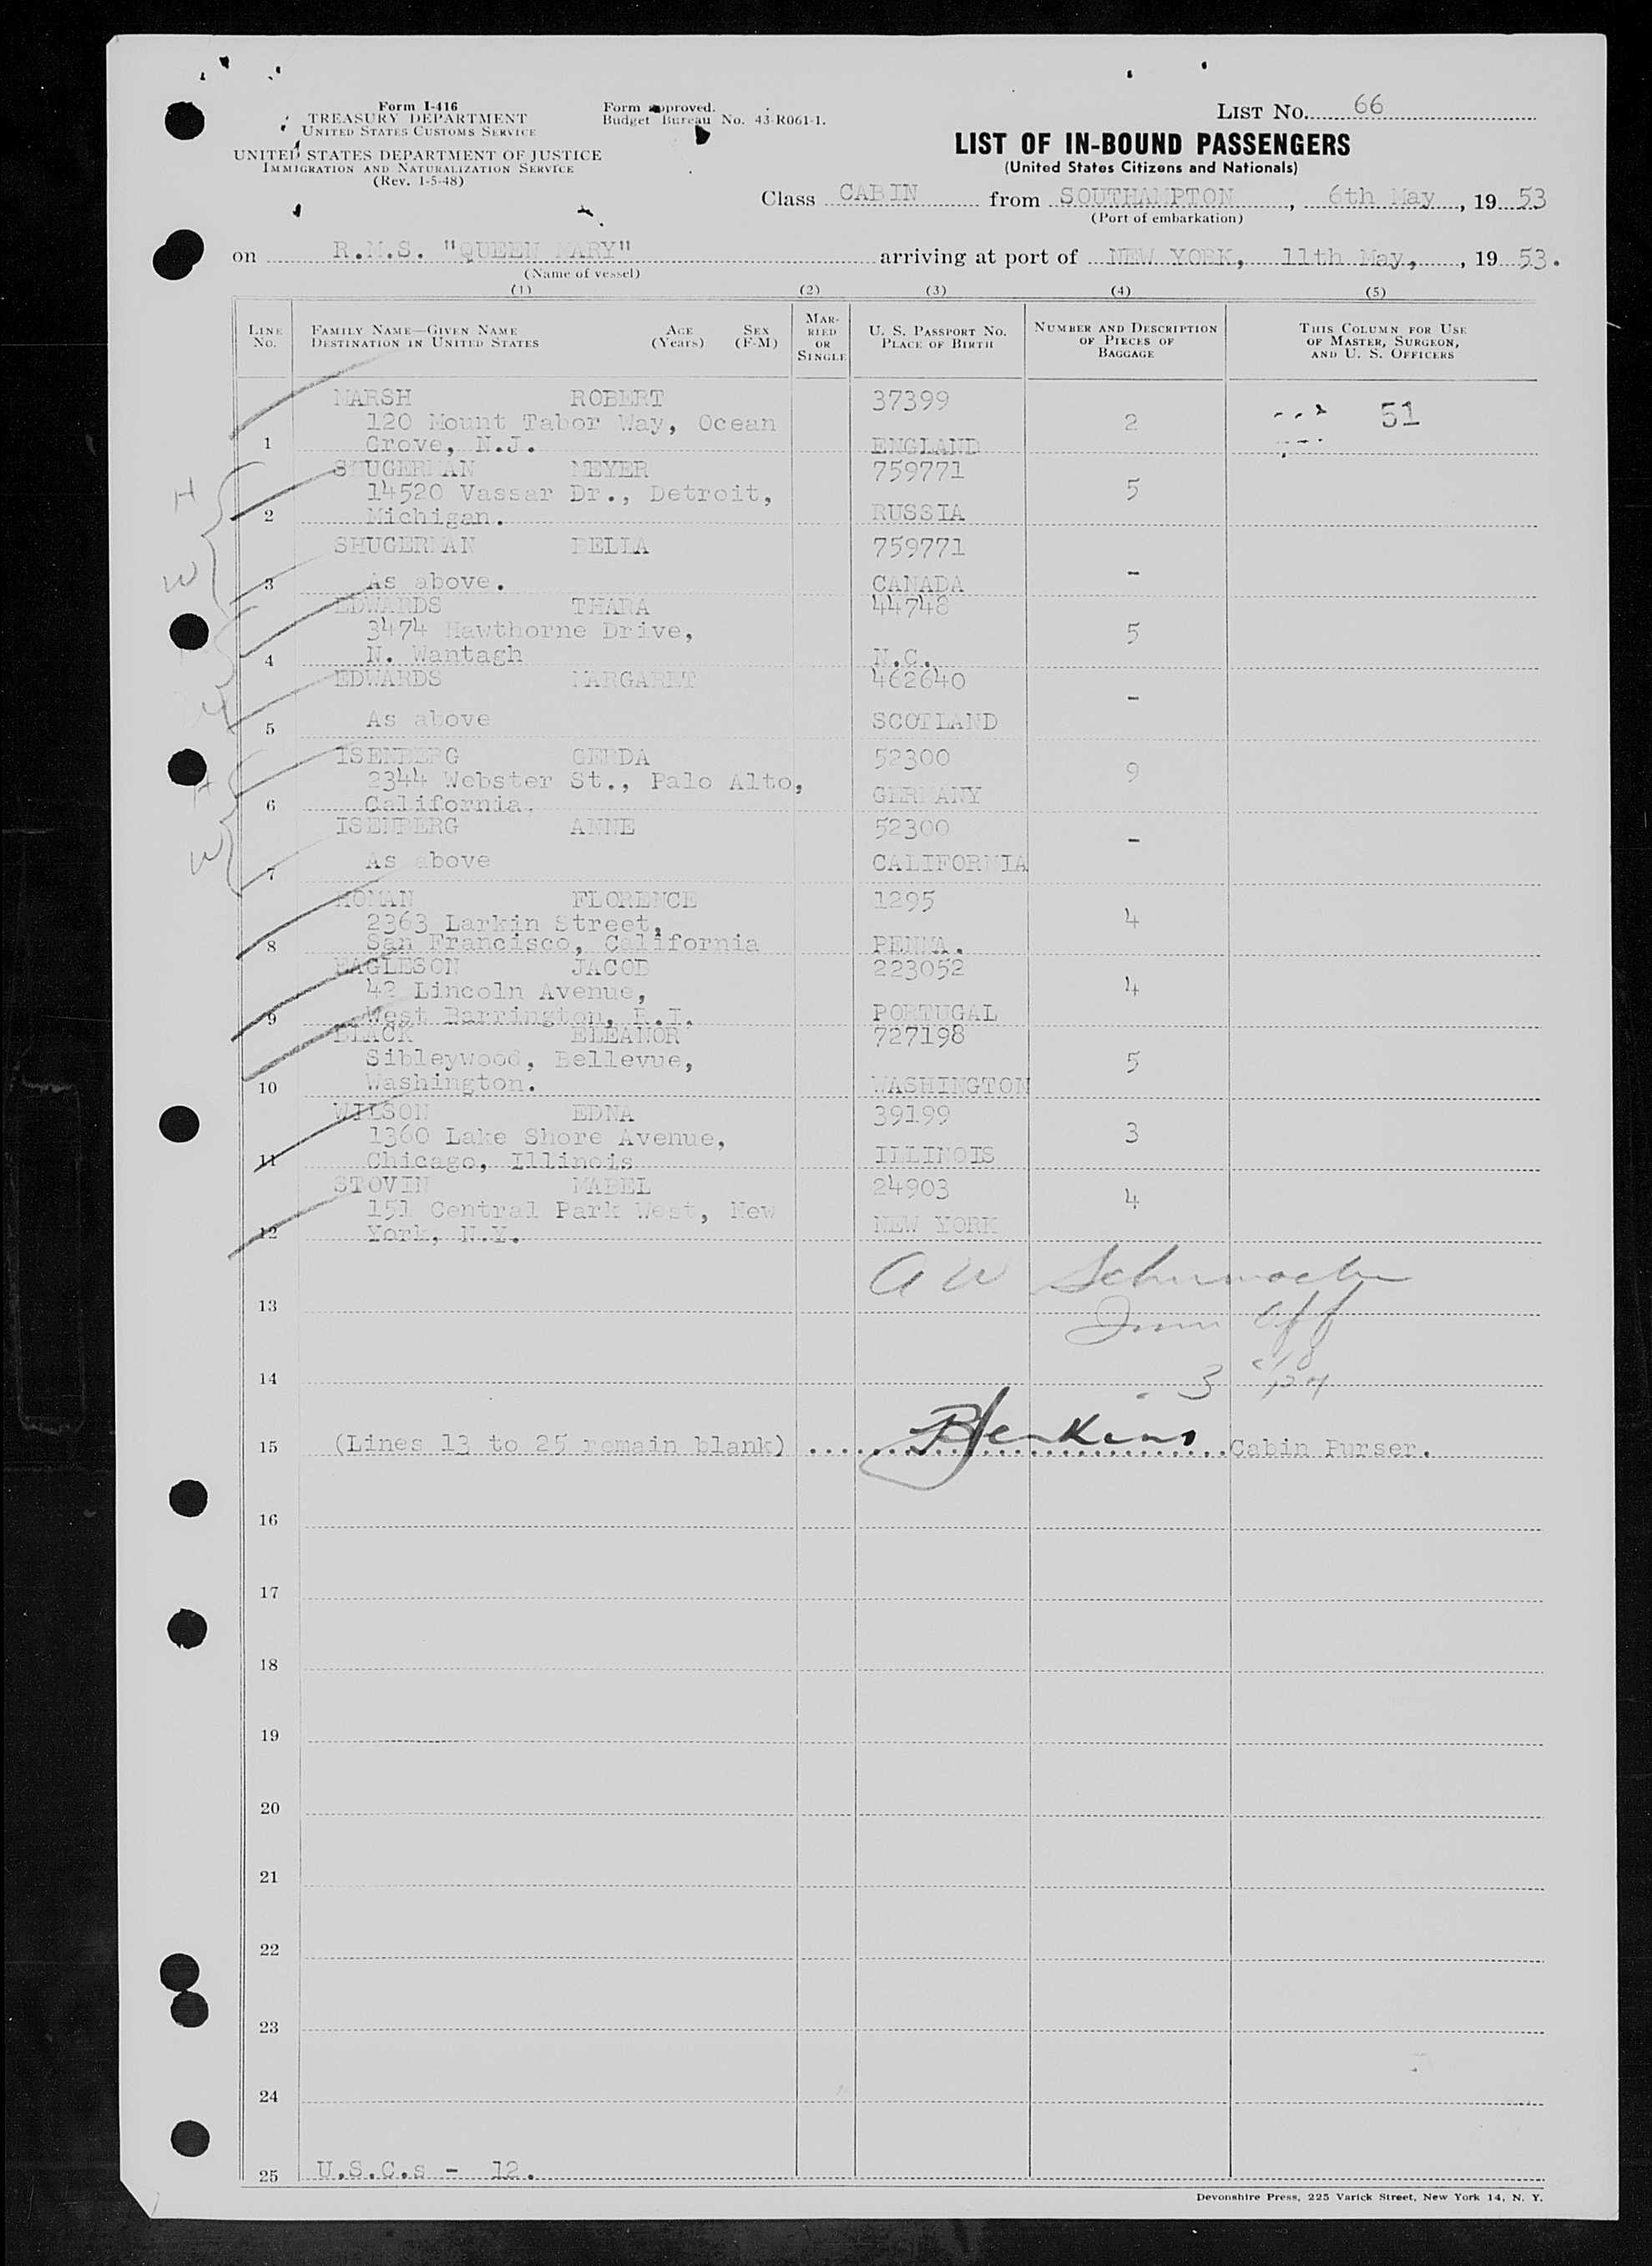 Form I-416
TREASURY DEPARTMENT
UNITED STATES CUSTOMS SERVICE
UNITED STATES DEPARTMENT OF JUSTICE
IMMIGRATION AND NATURALIZATION SERVICE
(Rev. 1-5-48)
Form approved.
Budget Bureau No. 43-R061-1.
LIST No. 66
LIST OF IN-BOUND PASSENGERS
(United States Citizens and Nationals)
Class CABIN from SOUTHAMPTON, 6th May, 19 53
(Port of embarkation)
on R.M.S. "QUEEN MARY" arriving at port of NEW YORK, 11th May, 19 53.
(Name of vessel)
(1) (2) (3) (4) (5)
LINE No. FAMILY NAME—GIVEN NAME DESTINATION IN UNITED STATES AGE (Years) SEX (F-M) MARRIED OR SINGLE U. S. PASSPORT NO. PLACE OF BIRTH NUMBER AND DESCRIPTION OF PIECES OF BAGGAGE THIS COLUMN FOR USE OF MASTER, SURGEON, AND U. S. OFFICERS
MARSH ROBERT 37399
120 Mount Tabor Way, Ocean 2 51
1 Grove, N.J. ENGLAND
SHUGERMAN MEYER 759771
H 14520 Vassar Dr., Detroit, 5
2 Michigan. RUSSIA
SHUGERMAN BELLA 759771
W 3 As above. CANADA -
EDWARDS THARA 44748
3474 Hawthorne Drive, 5
4 N. Wantagh N.C.
EDWARDS MARGARET 462640
5 As above SCOTLAND -
ISENBERG GERDA 52300
2344 Webster St., Palo Alto, 9
6 California. GERMANY
ISENBERG ANNE 52300
W 7 As above CALIFORNIA -
HOMAN FLORENCE 1295
2363 Larkin Street, 4
8 San Francisco, California PENNA.
EAGLESON JACOB 223052
42 Lincoln Avenue, 4
9 West Barrington, R.I. PORTUGAL
BLACK ELEANOR 727198
Sibleywood, Bellevue, 5
10 Washington. WASHINGTON
WILSON EDNA 39199
1360 Lake Shore Avenue, 3
11 Chicago, Illinois ILLINOIS
STOVIN MABEL 24903
151 Central Park West, New 4
12 York, N.Y. NEW YORK
A W Schumacher
13
Imm Off
14
15 (Lines 13 to 25 remain blank) BJenkins Cabin Purser.
16
17
18
19
20
21
22
23
24
25 U.S.C.s - 12.
Devonshire Press, 225 Varick Street, New York 14, N. Y.